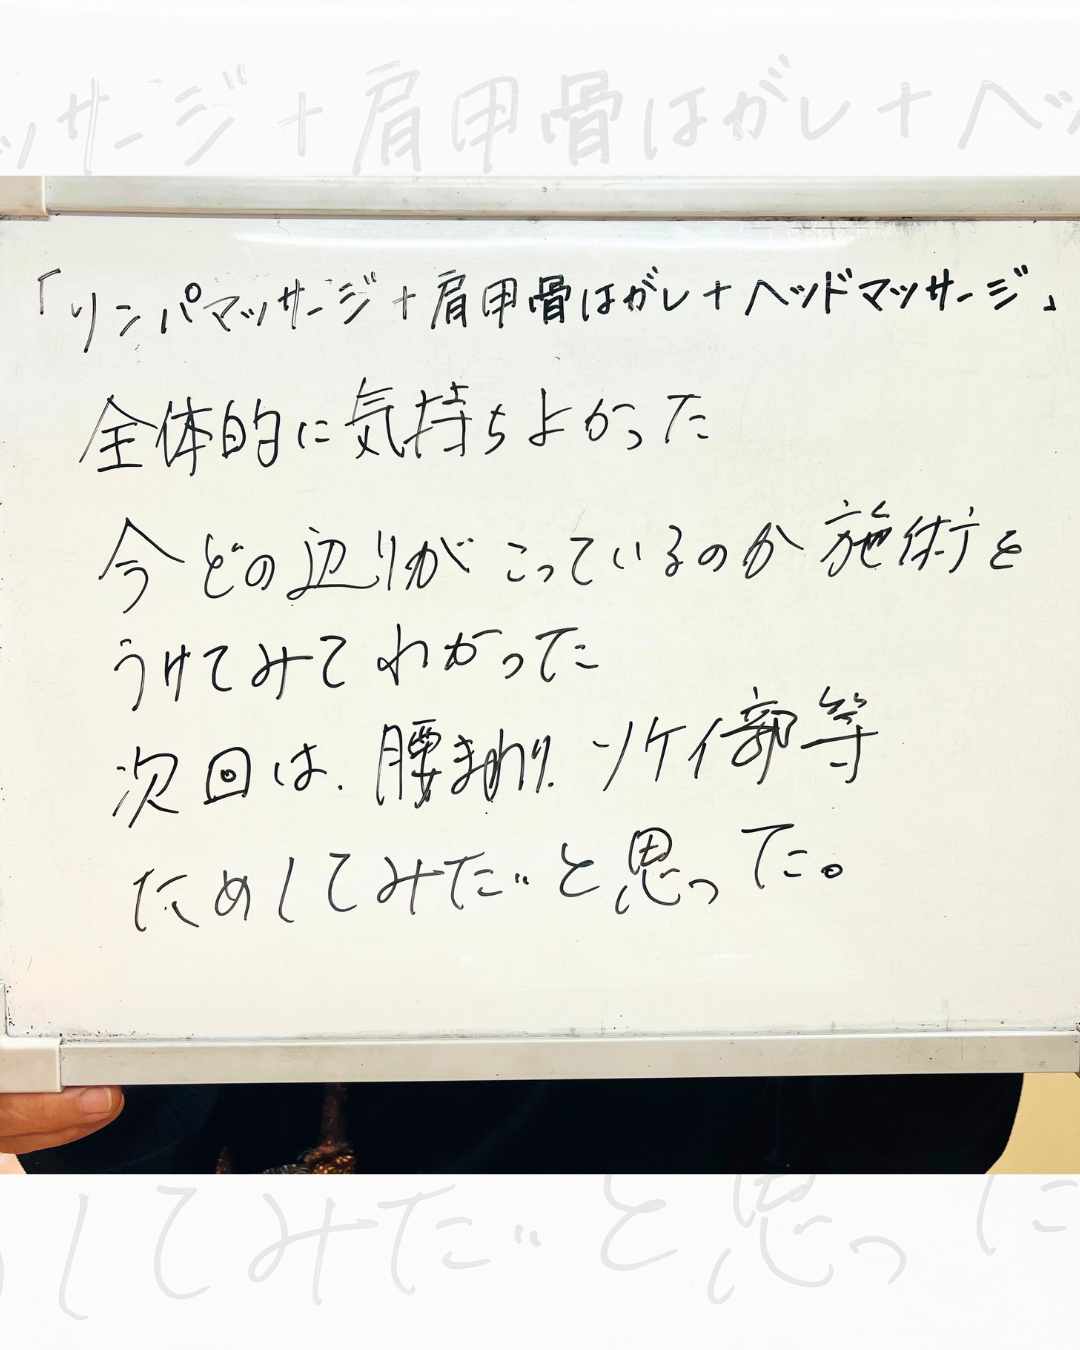 ッサージ+肩甲骨はがし+ヘッ
「リンパマッサージ+肩甲骨はがし+ヘッドマッサージ」
全体的に気持ちよかった
今どの辺りがこっているのか施術を
うけてみてわかった
次回は、腰まわり、ソケイ部等
ためしてみたいと思った。
してみたいと思った